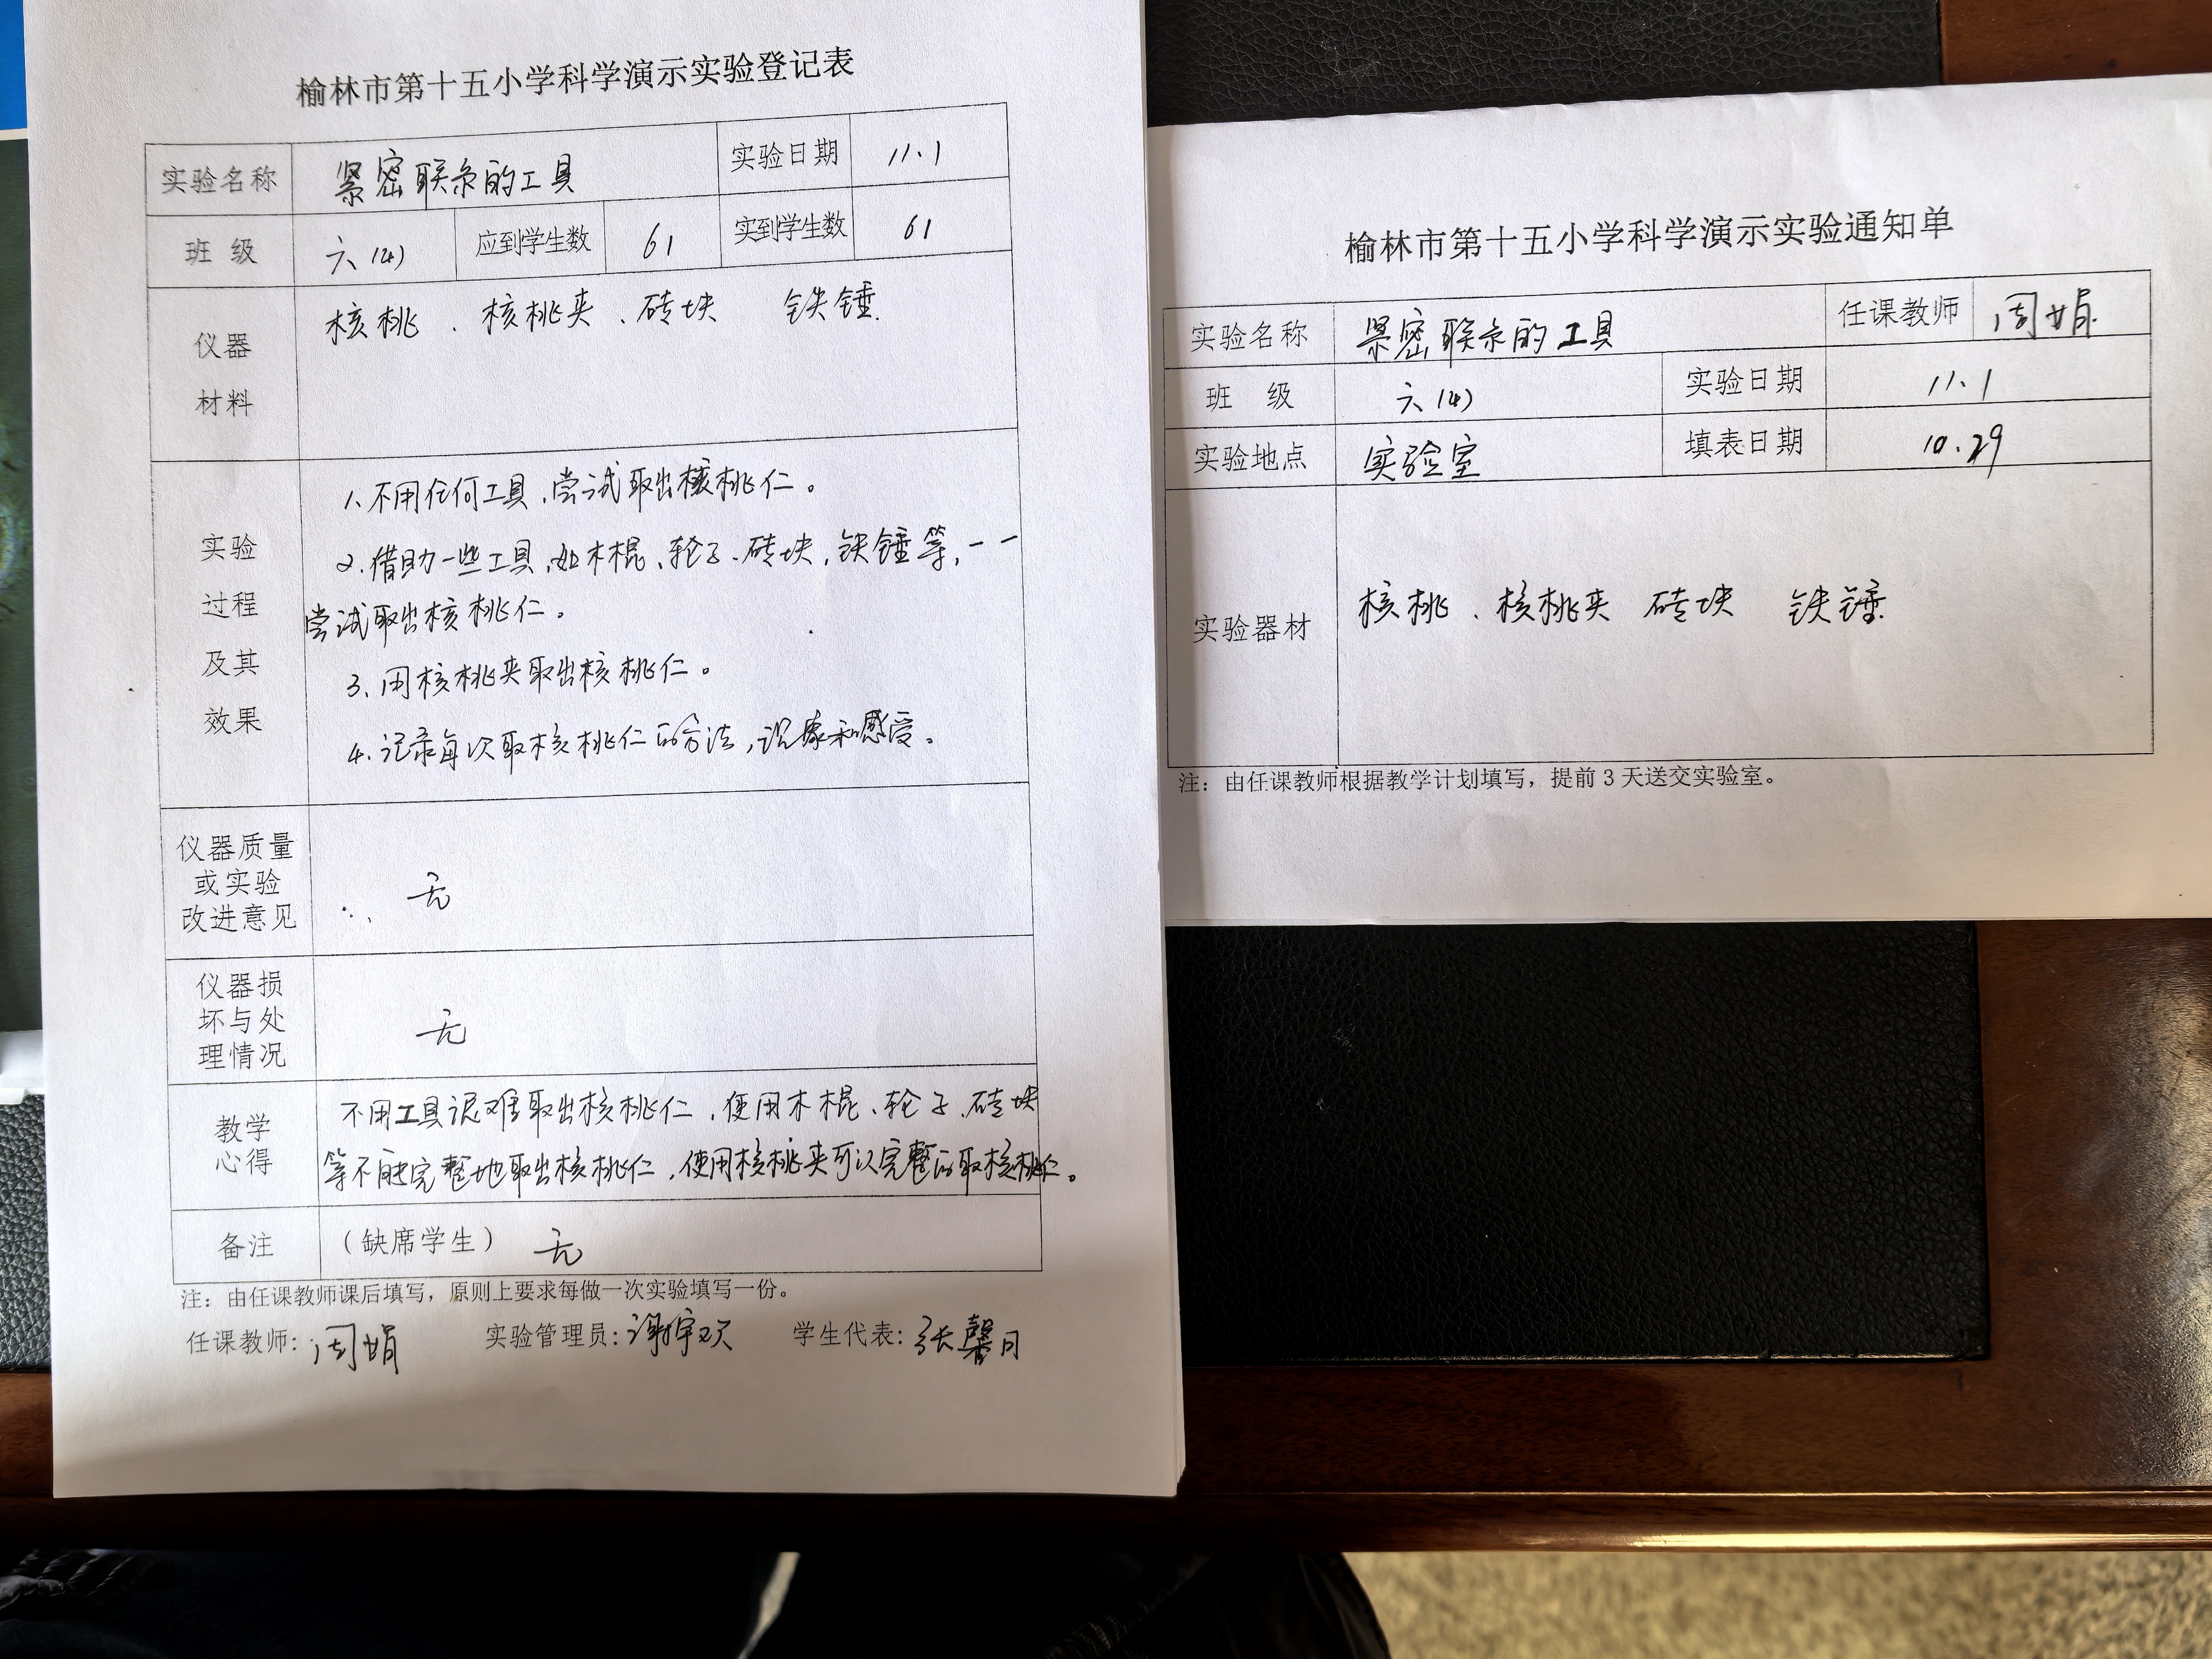 榆林市第十五小学科学演示实验登记表
实验名称 紧密联系的工具 实验日期 11.1
班 级 六(4) 应到学生数 61 实到学生数 61
仪器 核桃、核桃夹、砖块 铁锤.
材料
1、不用任何工具,尝试取出核桃仁。
实验 2、借助一些工具,如木棍、轮子、砖块,铁锤等,一一
过程 尝试取出核桃仁。
及其 3、用核桃夹取出核桃仁。
效果 4、记录每次取核桃仁的方法,现象和感受。
仪器质量
或实验 无
改进意见
仪器损
坏与处 无
理情况
教学 不用工具很难取出核桃仁,使用木棍、轮子、砖块
心得 等不能完整地取出核桃仁,使用核桃夹可以完整的取核桃仁。
备注 (缺席学生) 无
注:由任课教师课后填写,原则上要求每做一次实验填写一份。
任课教师: 周娟 实验管理员: 学生代表: 张馨月
榆林市第十五小学科学演示实验通知单
实验名称 紧密联系的工具 任课教师 周娟
班 级 六(4) 实验日期 11.1
实验地点 实验室 填表日期 10.29
实验器材 核桃、核桃夹 砖块 铁锤.
注:由任课教师根据教学计划填写,提前3天送交实验室。